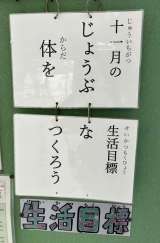 じゅういちがつ せいかつもくひょう
十一月の 生活目標
じょうぶ な
からだ
体を つくろう
生活目標